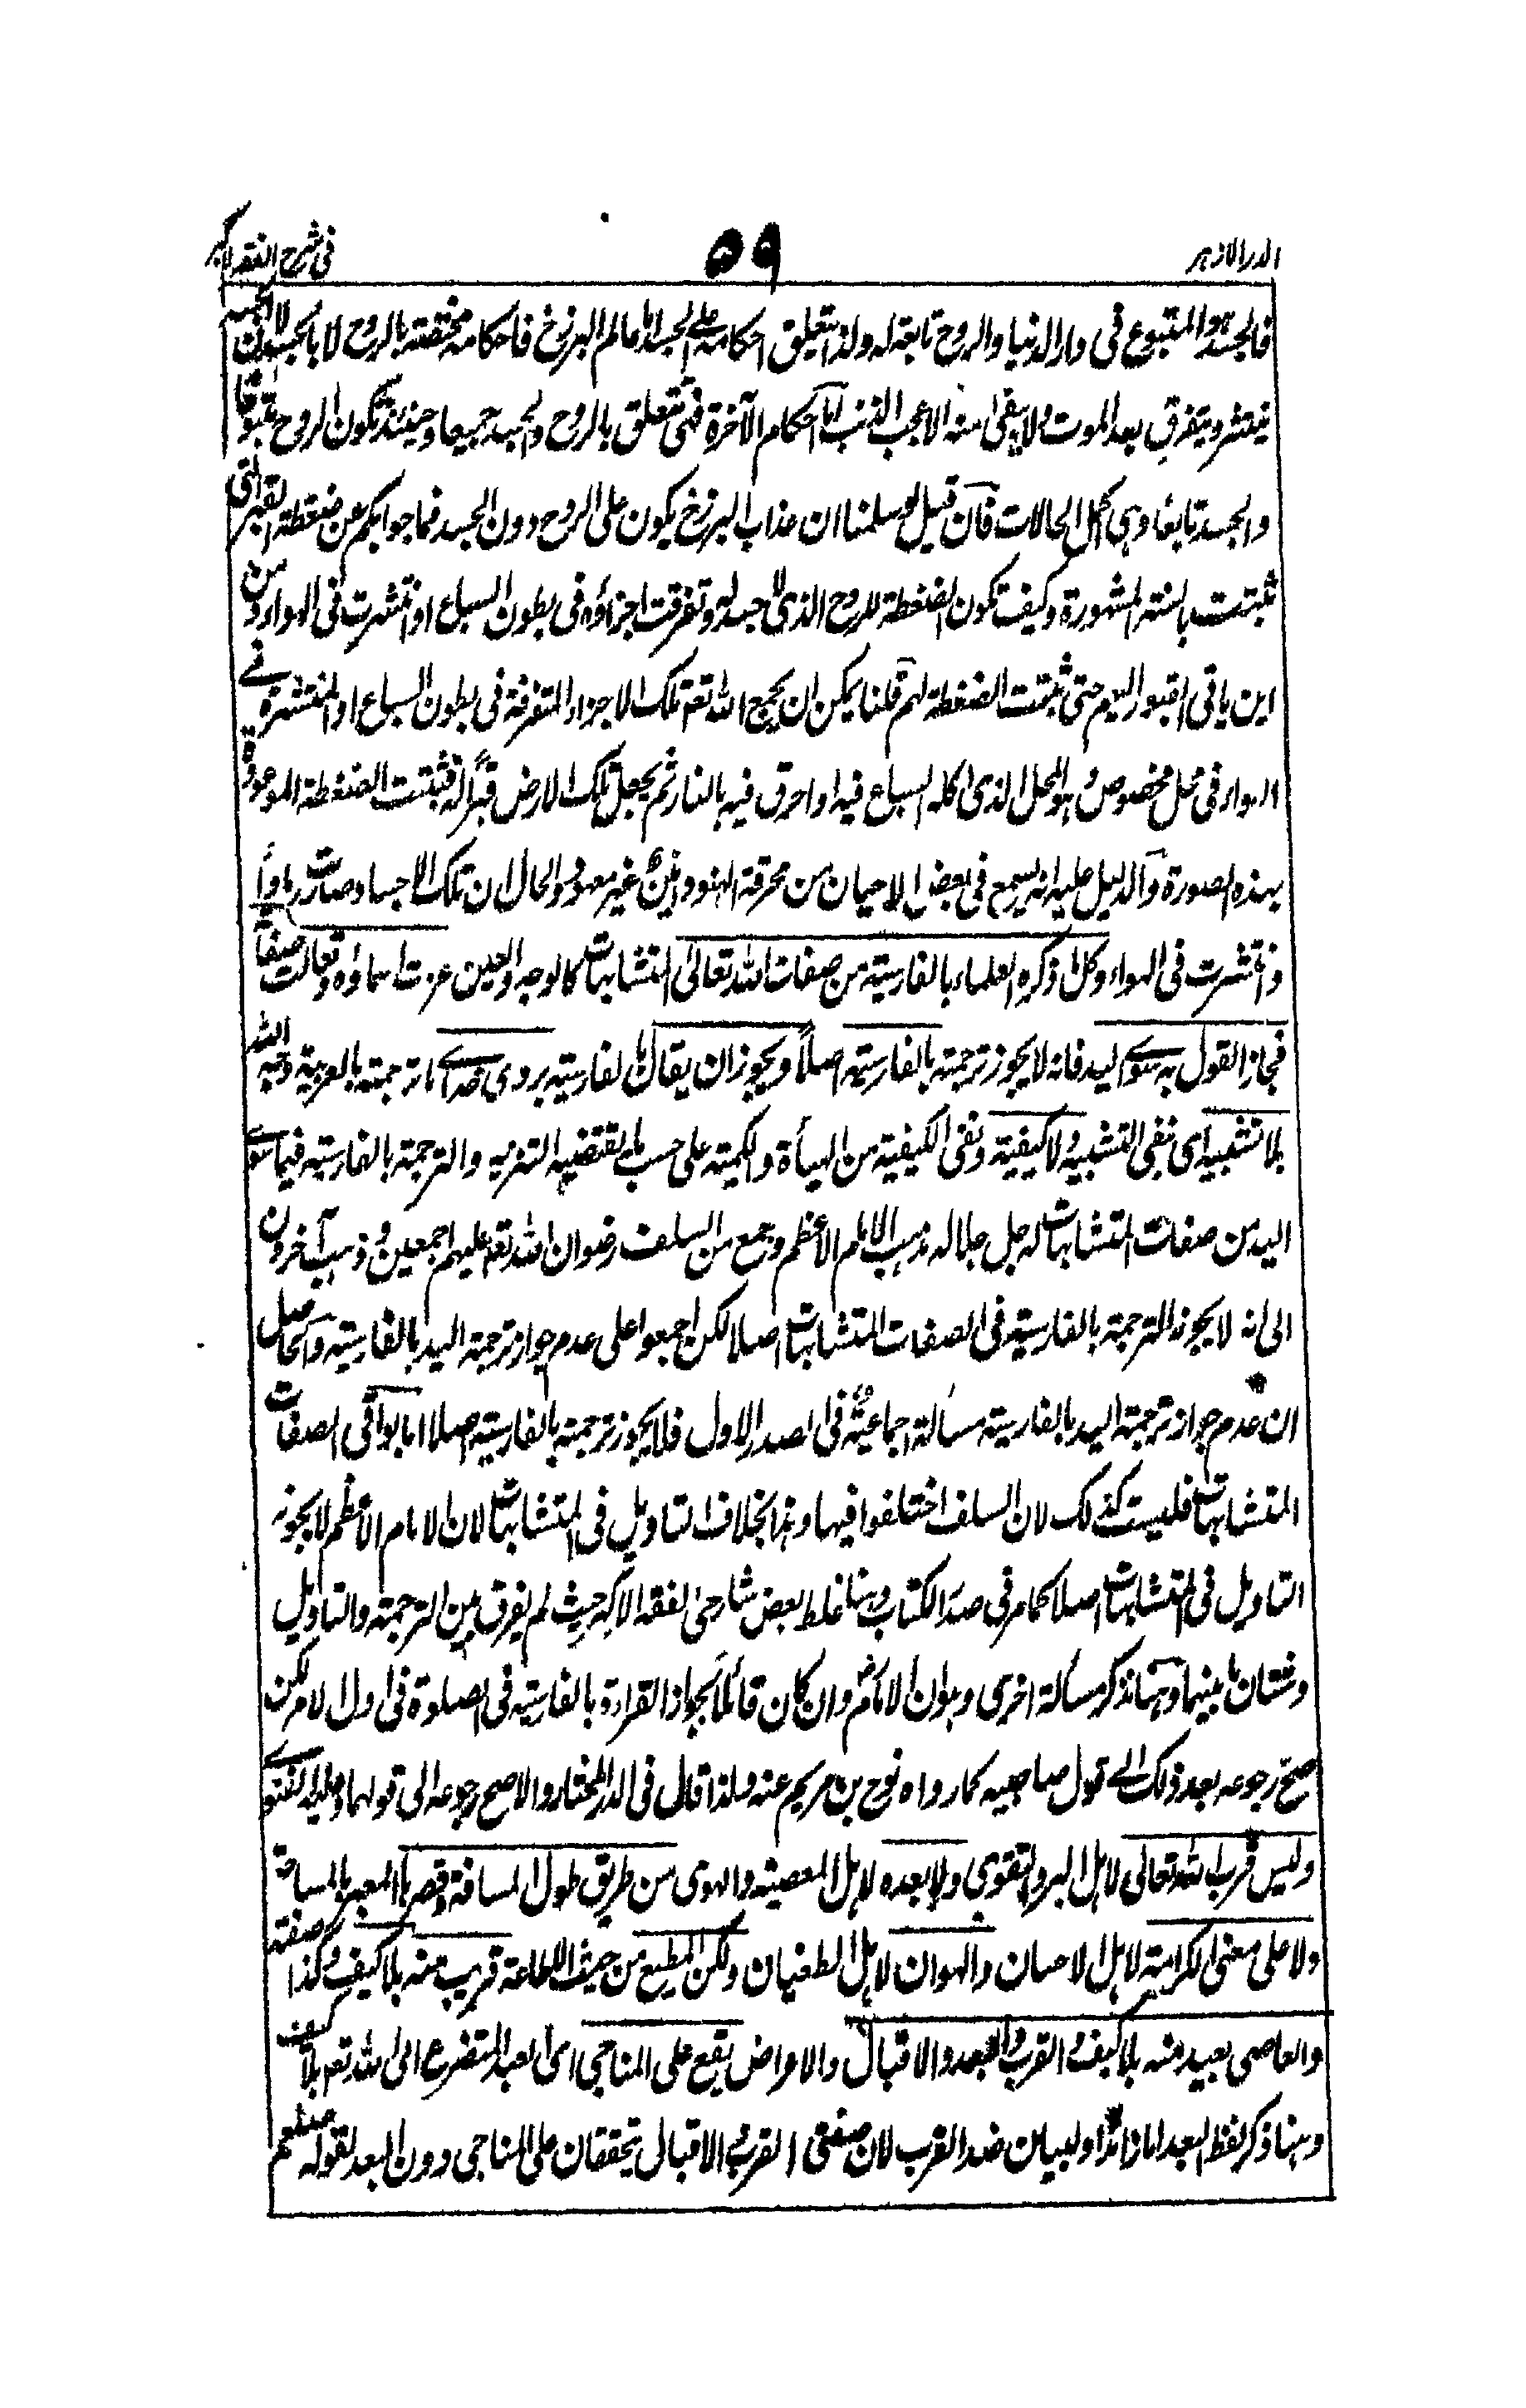 الدر الازهر
٥٩
فى شرح الفقه الاكبر
فالجسد هو المتبوع فى دار الدنيا والروح تابعة له ولذا يتعلق احكامه على الجسد اما عالم البرزخ فاحكامه مختصة بالروح لا بالجسد لان الجسد
ينتشر ويتفرق بعد الموت ولا يبقى منه الا عجب الذنب اما احكام الآخرة فهى تتعلق بالروح والجسد جميعا وحينئذ تكون الروح متبوعا
والجسد تابعا وهى اكمل الحالات فان قيل لو سلمنا ان عذاب البرزخ يكون على الروح دون الجسد فما جوابكم عن ضغطة القبر التى
ثبتت بالسنة المشهورة وكيف تكون الضغطة للروح الذى لا جسد له وتفرقت اجزاؤه فى بطون السباع او انتشرت فى الهواء ومن
اين ياتى القبور اليهم حتى ثبتت الضغطة لهم قلنا يمكن ان يجمع الله تعه تلك الاجزاء المتفرقة فى بطون السباع او المنتشرة فے
الهواء فى محل مخصوص وهو المحل الذى اكله السباع فيه او احرق فيه بالنار ثم يجعل تلك الارض قبرًا له فثبتت الضغطة الموعودة
بهذه الصورة والدليل عليه انه يسمع فى بعض الاحيان من محرقة الهنود انينٌ غير معهود والحال ان تلك الاجساد صارت رمادًا
وانتشرت فى الهواء وكل ما ذكره العلماء بالفارسية من صفات الله تعالى المتشابهات كالوجه والعين عزت اسماؤه وتعالت صفاته
فجاز القول به سوى اليد فانه لا يجوز ترجمته بالفارسية اصلاً ويجوز ان يقال بالفارسية بروى خداے ما ترجمته بالعربية وجه الله
بلا تشبيه اى نفى التشبيه ولا كيفية ونفى الكيفية من الهيأة والكمية على حسب ما يقتضيه التنزيه والترجمة بالفارسية فيما سوے
اليد من صفات المتشابهات له جل جلاله مذهب الامام الاعظم وجمع من السلف رضوان الله تعه عليهم اجمعين وذهب آخرون
الى انه لا يجوز الترجمة بالفارسية فى الصفات المتشابهات اصلا لكن اجمعوا على عدم جواز ترجمة اليد بالفارسية والحاصل
ان عدم جواز ترجمة اليد بالفارسية مسألة اجماعيةٌ فى الصدر الاول فلا يجوز ترجمته بالفارسية اصلا اما بواقى الصفات
المتشابهات فليست كذلك لان السلف اختلفوا فيها وهذا بخلاف التاويل فى المتشابهات لان الامام الاعظم لا يجوزه
التاويل فى المتشابهات اصلا كما مر فى صدر الكتاب وههنا غلط بعض شارحى الفقه الاكبر حيث لم يفرق بين الترجمة والتاويل
وشتان ما بينهما وههنا نذكر مسألة اخرى وهو ان الامام رض وان كان قائلاً بجواز القراءة بالفارسية فى الصلوة فى اول الامر لكن
صحّ رجوعه بعد ذلك الى قول صاحبيه كما رواه نوح بن مريم عنه ولذا قال فى الدر المختار والاصح رجوعه الى قولهما وعليه الفتوے
وليس قرب الله تعالى لاهل البر والتقوى ولا بعده لاهل المعصية والهوى من طريق طول المسافة وقصرها المعبر بالمساحة
ولا على معنى الكرامة لاهل الاحسان والهوان لاهل الطغيان ولكن المطيع من حيث الطاعة قريب منه بلا كيف وكذا صفته
والعاصى بعيد منه بلا كيف والقرب والبعد والاقبال والاعراض يقع على المناجى اى العبد المتضرع الى الله تعه بلا كيف
وههنا ذكر لفظ البعد اما زائدا او لبيان ضد القرب لان صفتى القرب والاقبال يتحققان على المناجى دون البعد لقوله صلعم